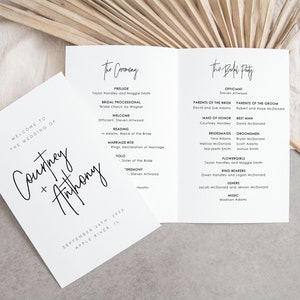 WELCOME TO
THE WEDDING OF
Courtney
+
Anthony
SEPTEMBER 24TH, 2022
APPLE RIVER, IL
The Ceremony
PRELUDE
Taylor Handley and Maggie Smith
BRIDAL PROCESSIONAL
Bridal Chorus by Wagner
WELCOME
Officiant, Steven Attwood
READING
Niece of the Bride
MARRIAGE RITE
Rings, Declaration of Marriage
SOLO
of the Bride
Steven Attwood
The Bridal Party
OFFICIANT
Steven Attwood
PARENTS OF THE BRIDE
David and Sue Handley
PARENTS OF THE GROOM
Robert and Hope McDonald
MAID OF HONOR
Courtney Handley
BEST MAN
David McDonald
BRIDESMAIDS
Tana Moore
Alexis Dobson
Jacquelin Smith
GROOMSMEN
Ryan Moore
Joshua Smith
FLOWERGIRLS
Taylor Handley and Maggie Smith
RING BEARERS
Owen Handley and Logan McDonald
USHERS
Jacob McDonald and Jensen McDonald
MUSIC
Madison Adams